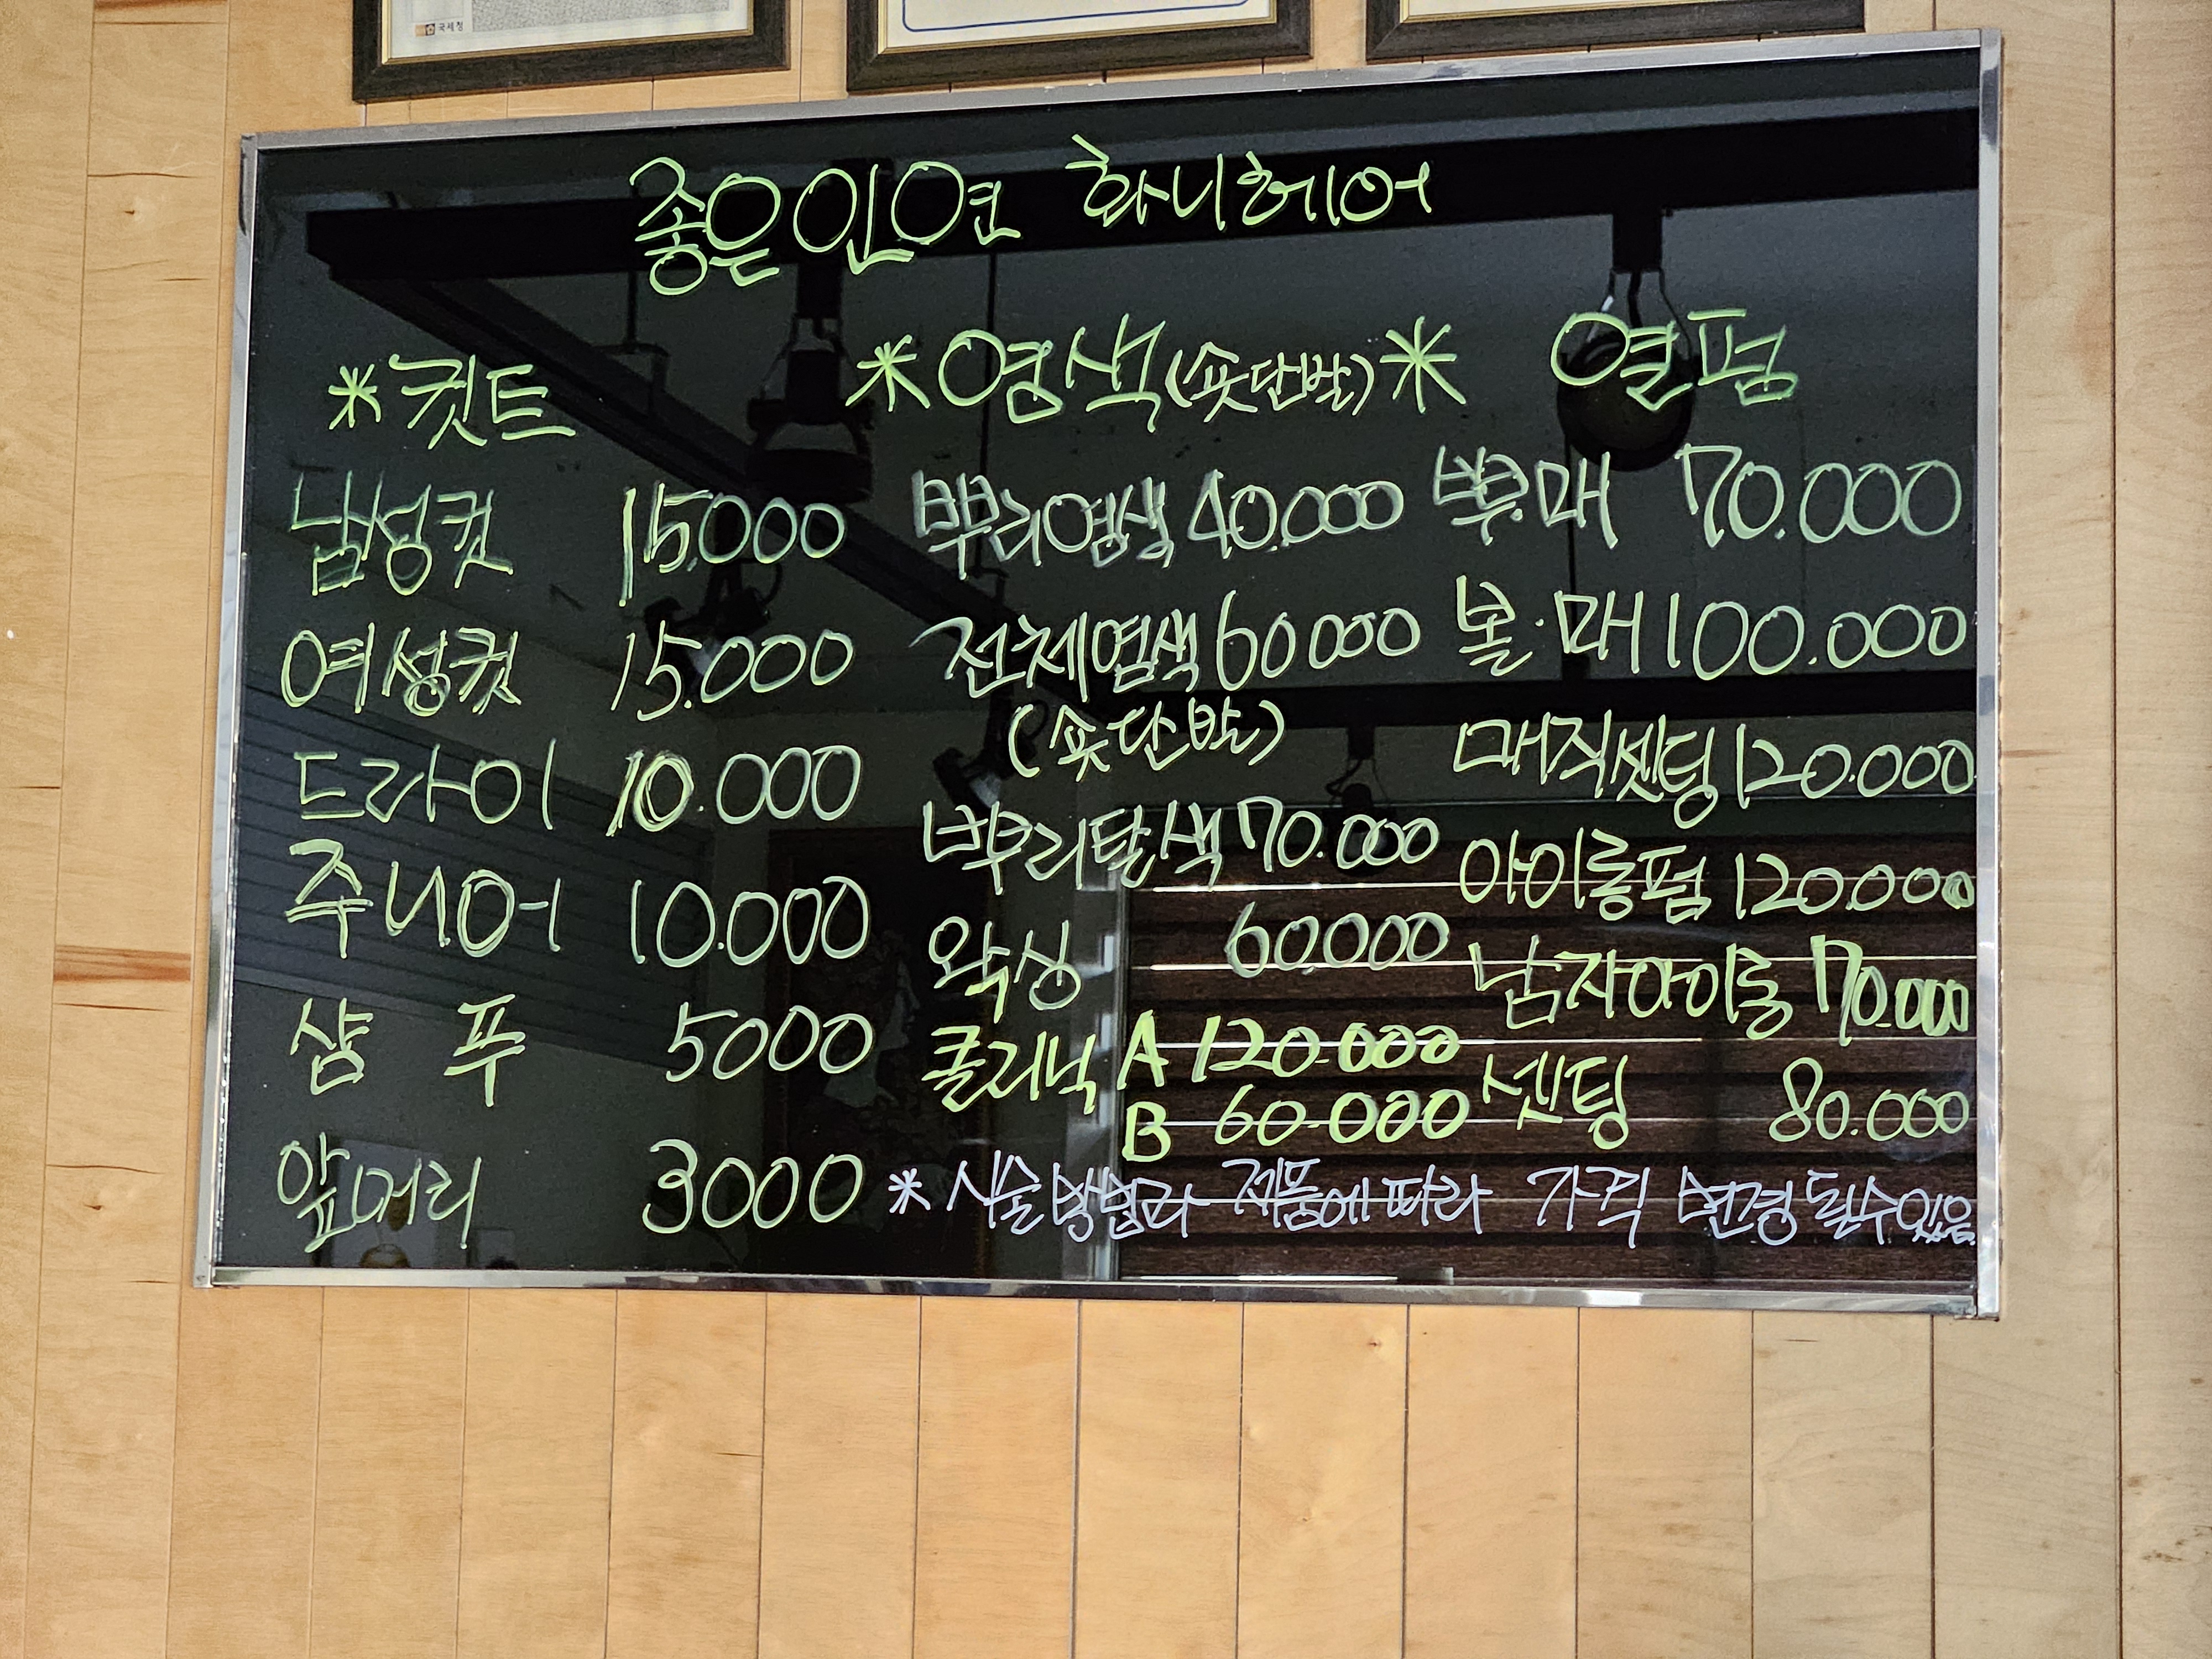 국세청
좋은인연 화니헤어
*컷트
남성컷 15.000
여성컷 15.000
드라이 10.000
주니어 10.000
샴 푸 5000
앞머리 3000
*염색(숏단발)*
뿌리염색 40.000
전체염색 60000
(숏단발)
뿌리탈색 70.000
왁싱 60.000
클리닉 A 120.000
B 60.000
열펌
뿌.매 70.000
볼.매 100.000
매직셋팅 120.000
아이롱펌 120.000
남자아이롱 70.000
셋팅 80.000
*시술방법과 제품에따라 가격 변경될수있음